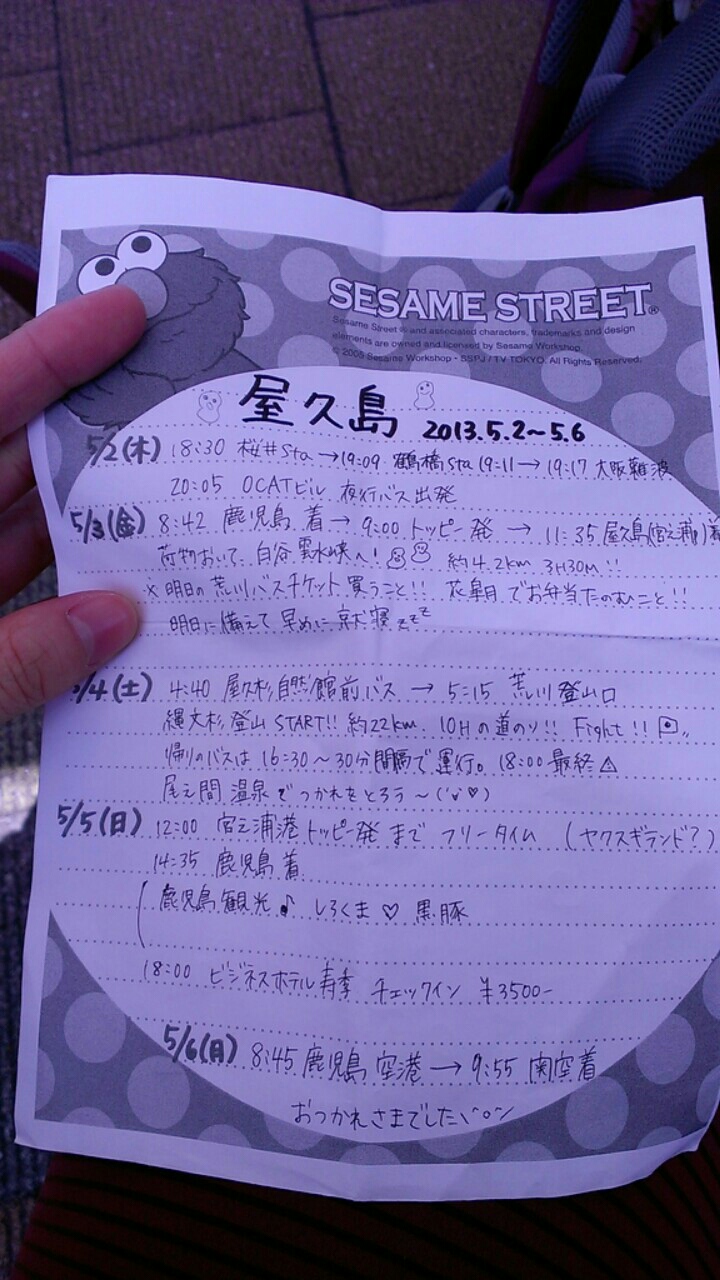 SESAME STREET®
Sesame Street ® and associated characters, trademarks and design
elements are owned and licensed by Sesame Workshop.
© 2005 Sesame Workshop・SSPJ / TV TOKYO. All Rights Reserved.
屋久島 2013.5.2~5.6
5/2(木) 18:30 桜井Sta→19:09 鶴橋Sta 19:11→19:17 大阪難波
20:05 OCATビル 夜行バス出発
5/3(金) 8:42 鹿児島着→9:00 トッピー発 → 11:35 屋久島(宮之浦)着
荷物おいて、白谷雲水峡へ! 約4.2km 3H30M!!
※明日の荒川バスチケット買うこと!! 花皐月でお弁当たのむこと!!
明日に備えて早めに就寝zzz
5/4(土) 4:40 屋久杉自然館前バス → 5:15 荒川登山口
縄文杉登山START!! 約22km. 10Hの道のり!! Fight!!
帰りのバスは 16:30~30分間隔で運行。18:00最終△
尾之間温泉でつかれをとろう~(˘v˘♡)
5/5(日) 12:00 宮之浦港トッピー発まで フリータイム (ヤクスギランド?)
14:35 鹿児島着
鹿児島観光♪ しろくま♡ 黒豚
18:00 ビジネスホテル寿季 チェックイン ¥3500-
5/6(月) 8:45 鹿児島空港 → 9:55 関空着
おつかれさまでした\^o^/